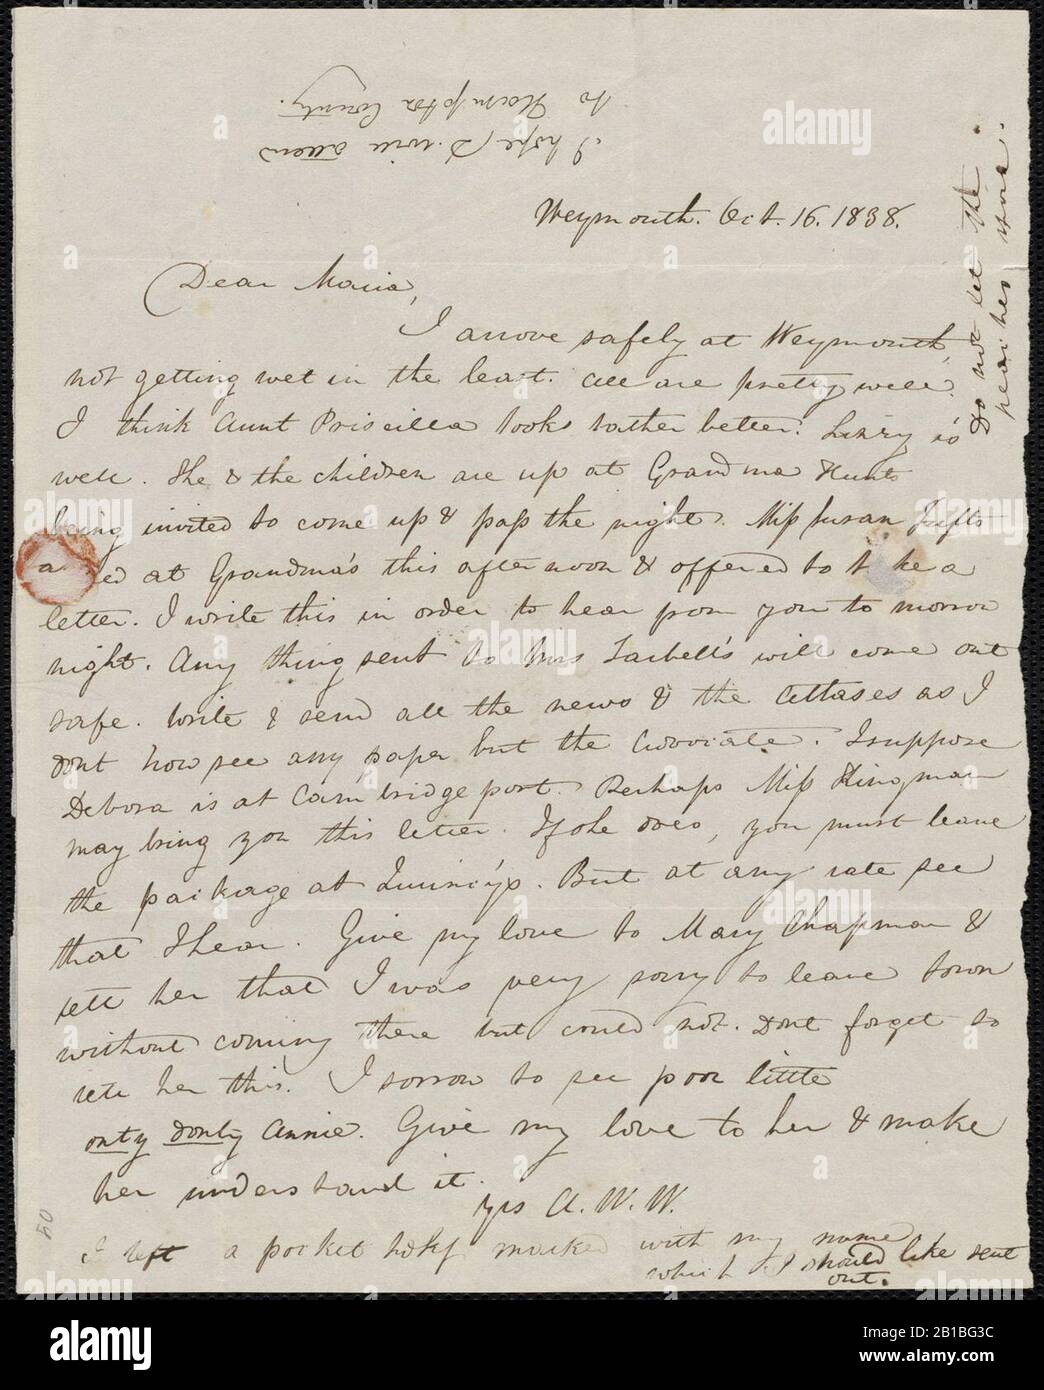 I hope D. will attend
to Hampton County.
Weymouth. Oct. 16. 1838.
Dear Maria,
I arrove safely at Weymouth,
not getting wet in the least. All are pretty well.
I think Aunt Priscilla looks rather better. Lizzy is
well. She & the children are up at Grandma Hunts
being invited to come up & pass the night. Miss Susan Tufts
at Grandma's this afternoon & offered to take a
letter. I write this in order to hear from you to morrow
night. Any thing sent to Mrs Tarbell's will come out
safe. Write & send all the news & the as I
dont now see any paper but the . I suppose
Debora is at Cambridgeport. Perhaps Miss Kingman
may bring you this letter. If she does, you must leave
the package at Quincy's. But at any rate see
that I hear. Give my love to Mary Chapman &
tell her that I was very sorry to leave town
without coming there but could not. Dont forget to
tell her this. I sorrow to see poor little
onty donty Annie. Give my love to her & make
her understand it.
yrs A. W. W.
I left a pocket hdkf marked with my name
which I should like sent
out.
Do not let the
peaches
50
alamy
a
www.alamy.com
Image ID: 2B1BG3C